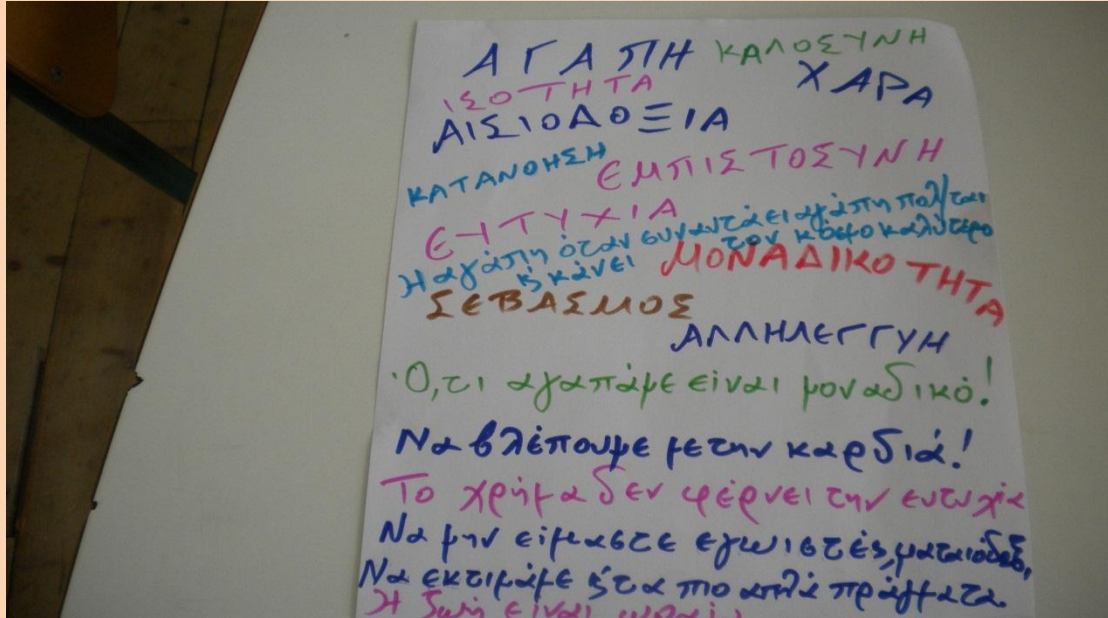 ΑΓΑΠΗ ΚΑΛΟΣΥΝΗ
ΙΣΟΤΗΤΑ ΧΑΡΑ
ΑΙΣΙΟΔΟΞΙΑ
ΚΑΤΑΝΟΗΣΗ ΕΜΠΙΣΤΟΣΥΝΗ
ΕΥΤΥΧΙΑ
Η αγάπη όταν συναντάει αγάπη πολ/ται
κ κάνει τον κόσμο καλύτερο
ΜΟΝΑΔΙΚΟΤΗΤΑ
ΣΕΒΑΣΜΟΣ
ΑΛΛΗΛΕΓΓΥΗ
Ό,τι αγαπάμε είναι μοναδικό!
Να βλέπουμε με την καρδιά!
Το χρήμα δεν φέρνει την ευτυχία
Να μην είμαστε εγωιστές, ματαιόδοξ,
Να εκτιμάμε κ τα πιο απλά πράγματα.
Η ζωή είναι